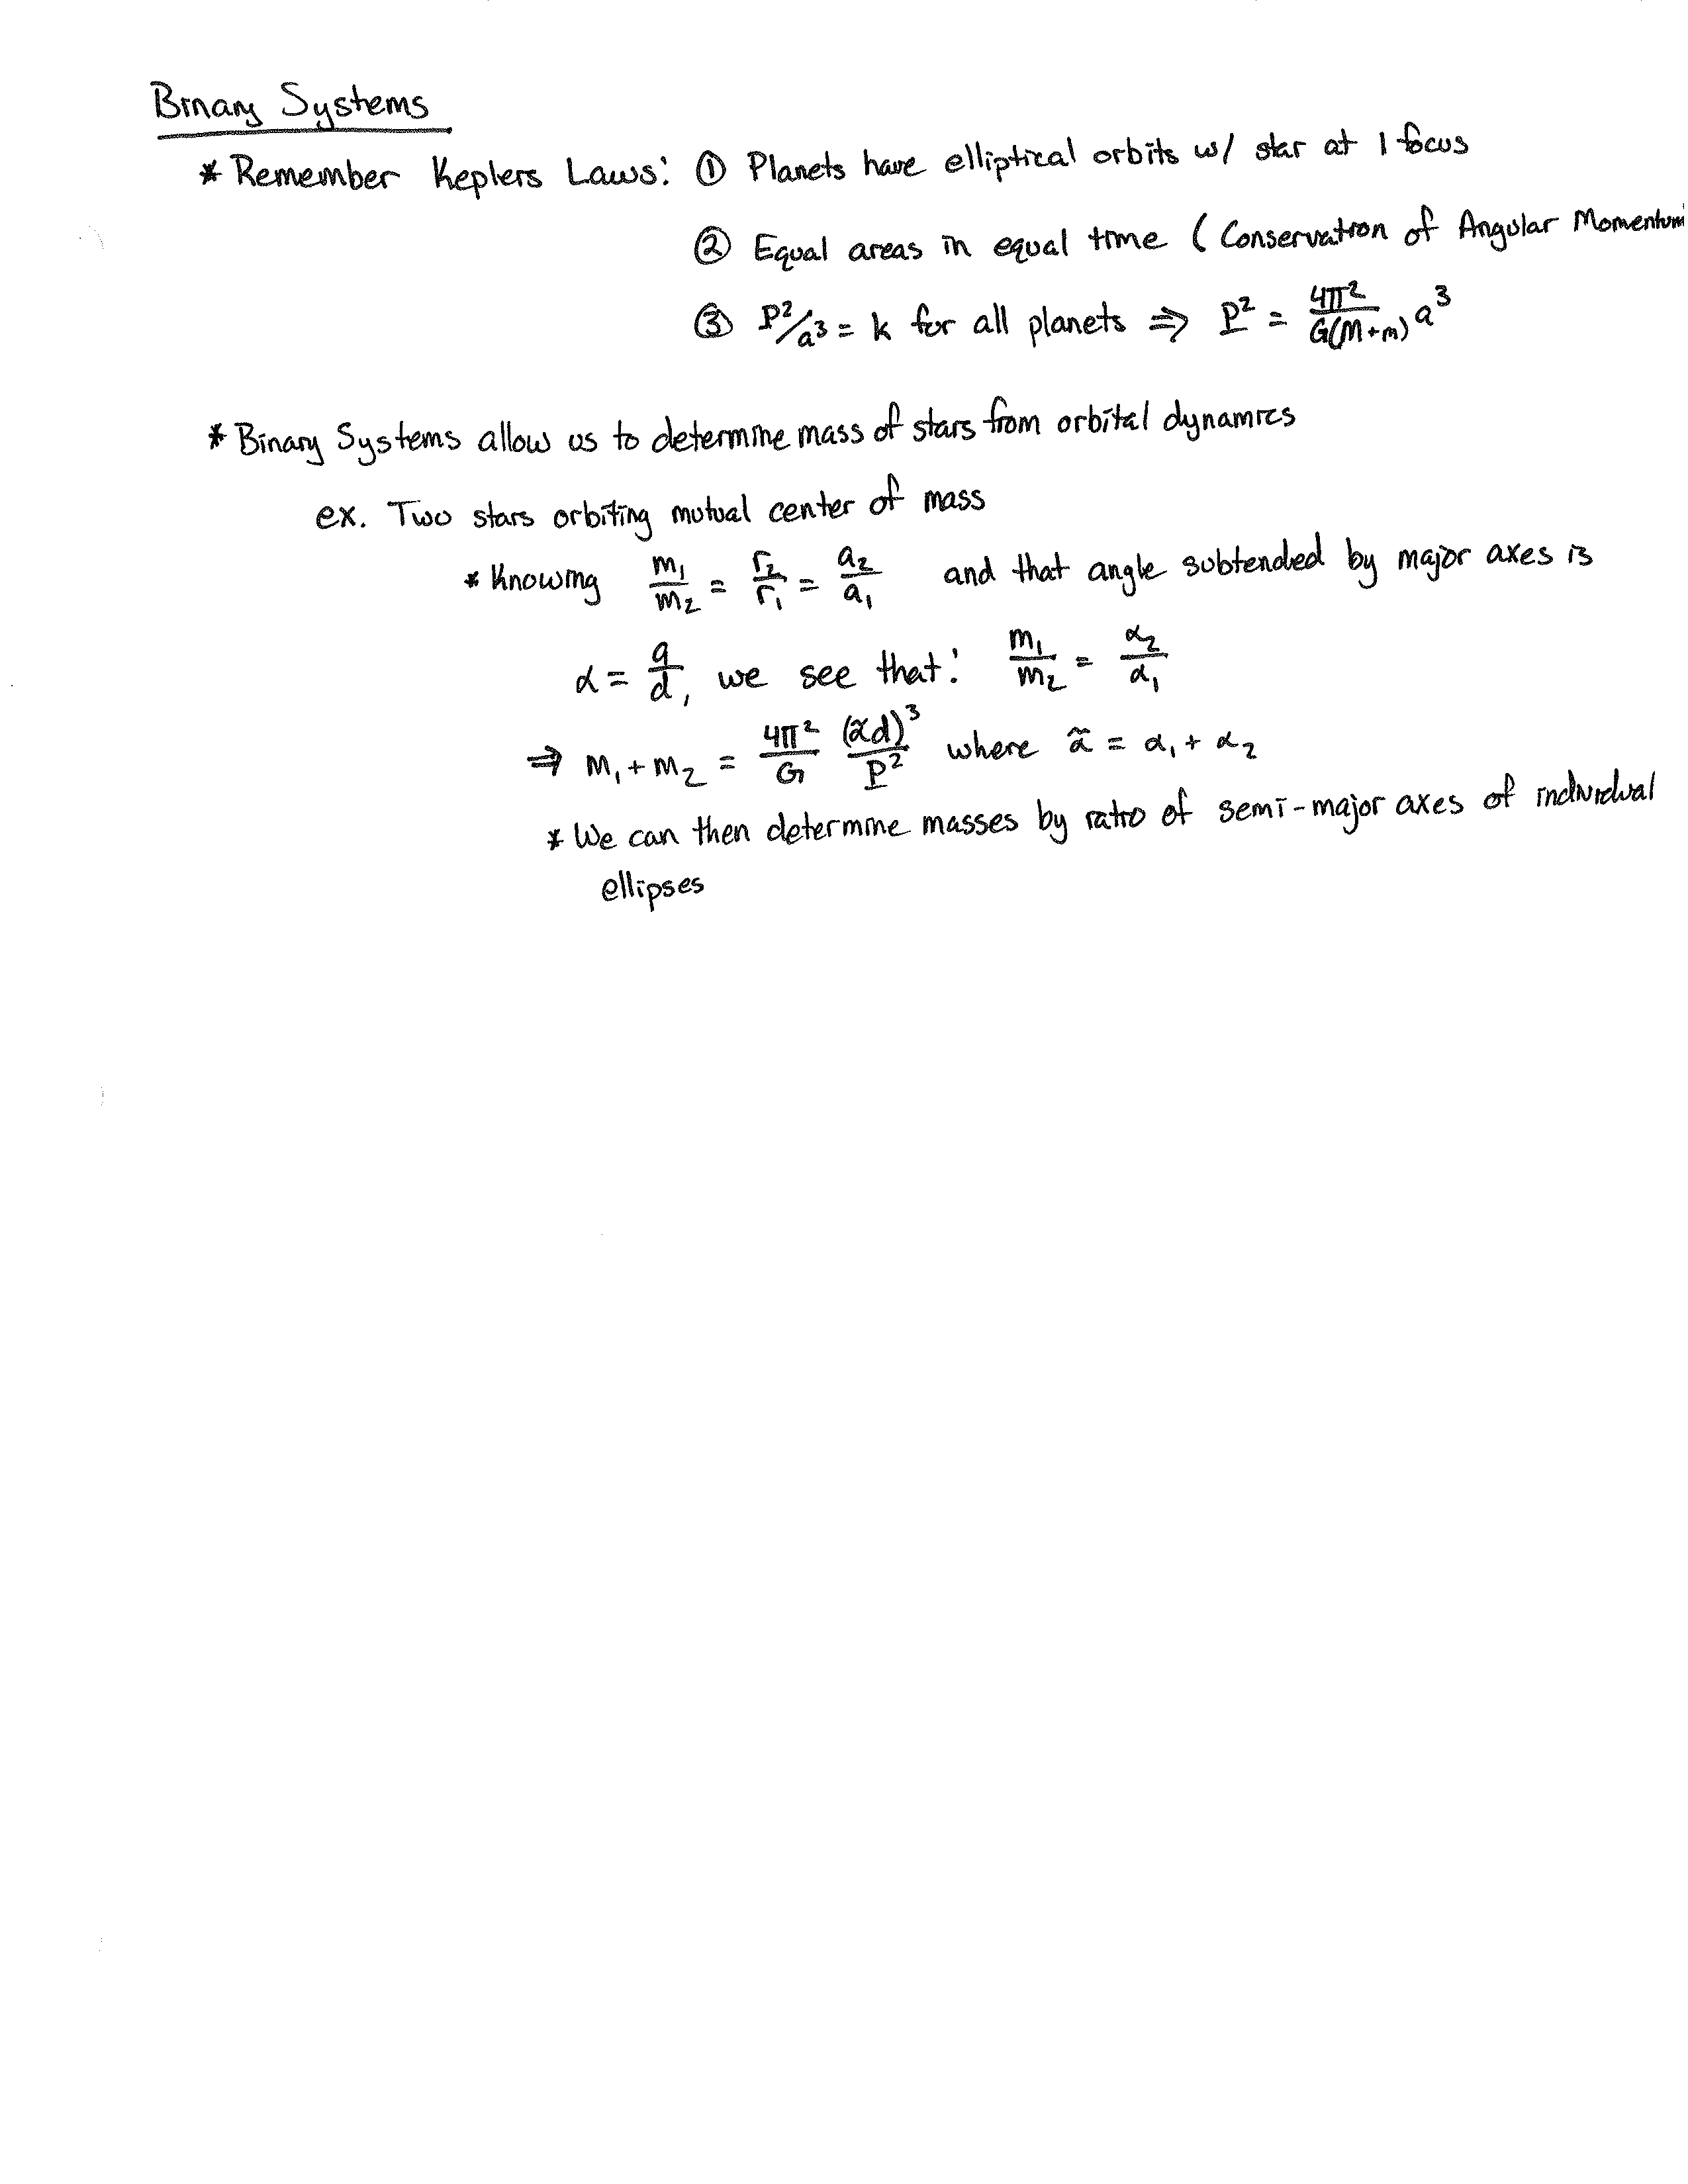 Binary Systems
* Remember Keplers Laws: ① Planets have elliptical orbits w/ star at 1 focus
② Equal areas in equal time (Conservation of Angular Momentum
③ P²/a³ = k for all planets ⇒ P² = 4π²/G(M+m) a³
* Binary Systems allow us to determine mass of stars from orbital dynamics
ex. Two stars orbiting mutual center of mass
* Knowing m₁/m₂ = r₂/r₁ = a₂/a₁ and that angle subtended by major axes is
α = a/d, we see that: m₁/m₂ = α₂/α₁
⇒ m₁ + m₂ = 4π²/G (α̃d)³/P² where α̃ = α₁ + α₂
* We can then determine masses by ratio of semi-major axes of individual
ellipses